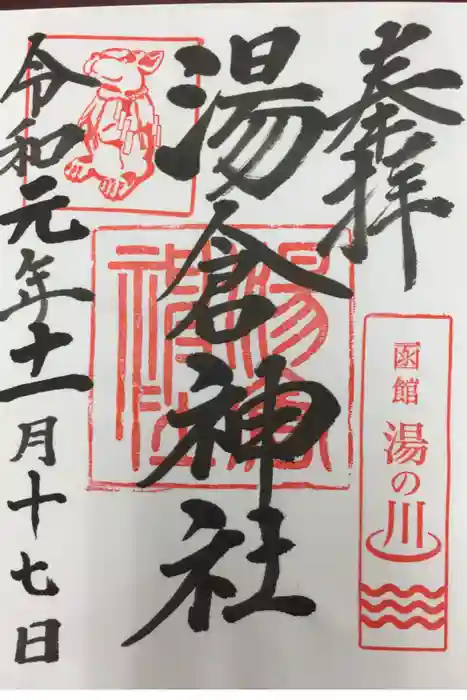 奉拝
函館
湯の川
湯倉神社
令和元年十一月十七日